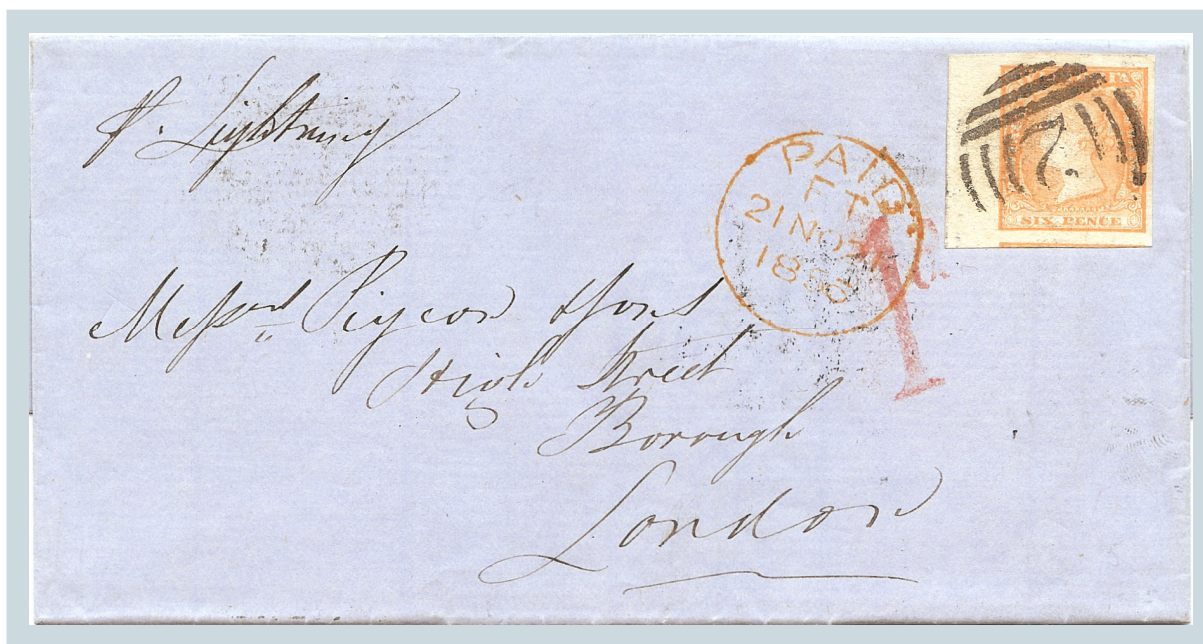 p. Lightning
PAID
FT
21 NO 21
1856
1d
2
SIX PENCE
Messrs Pigeon & Sons
High Street
Borough
London